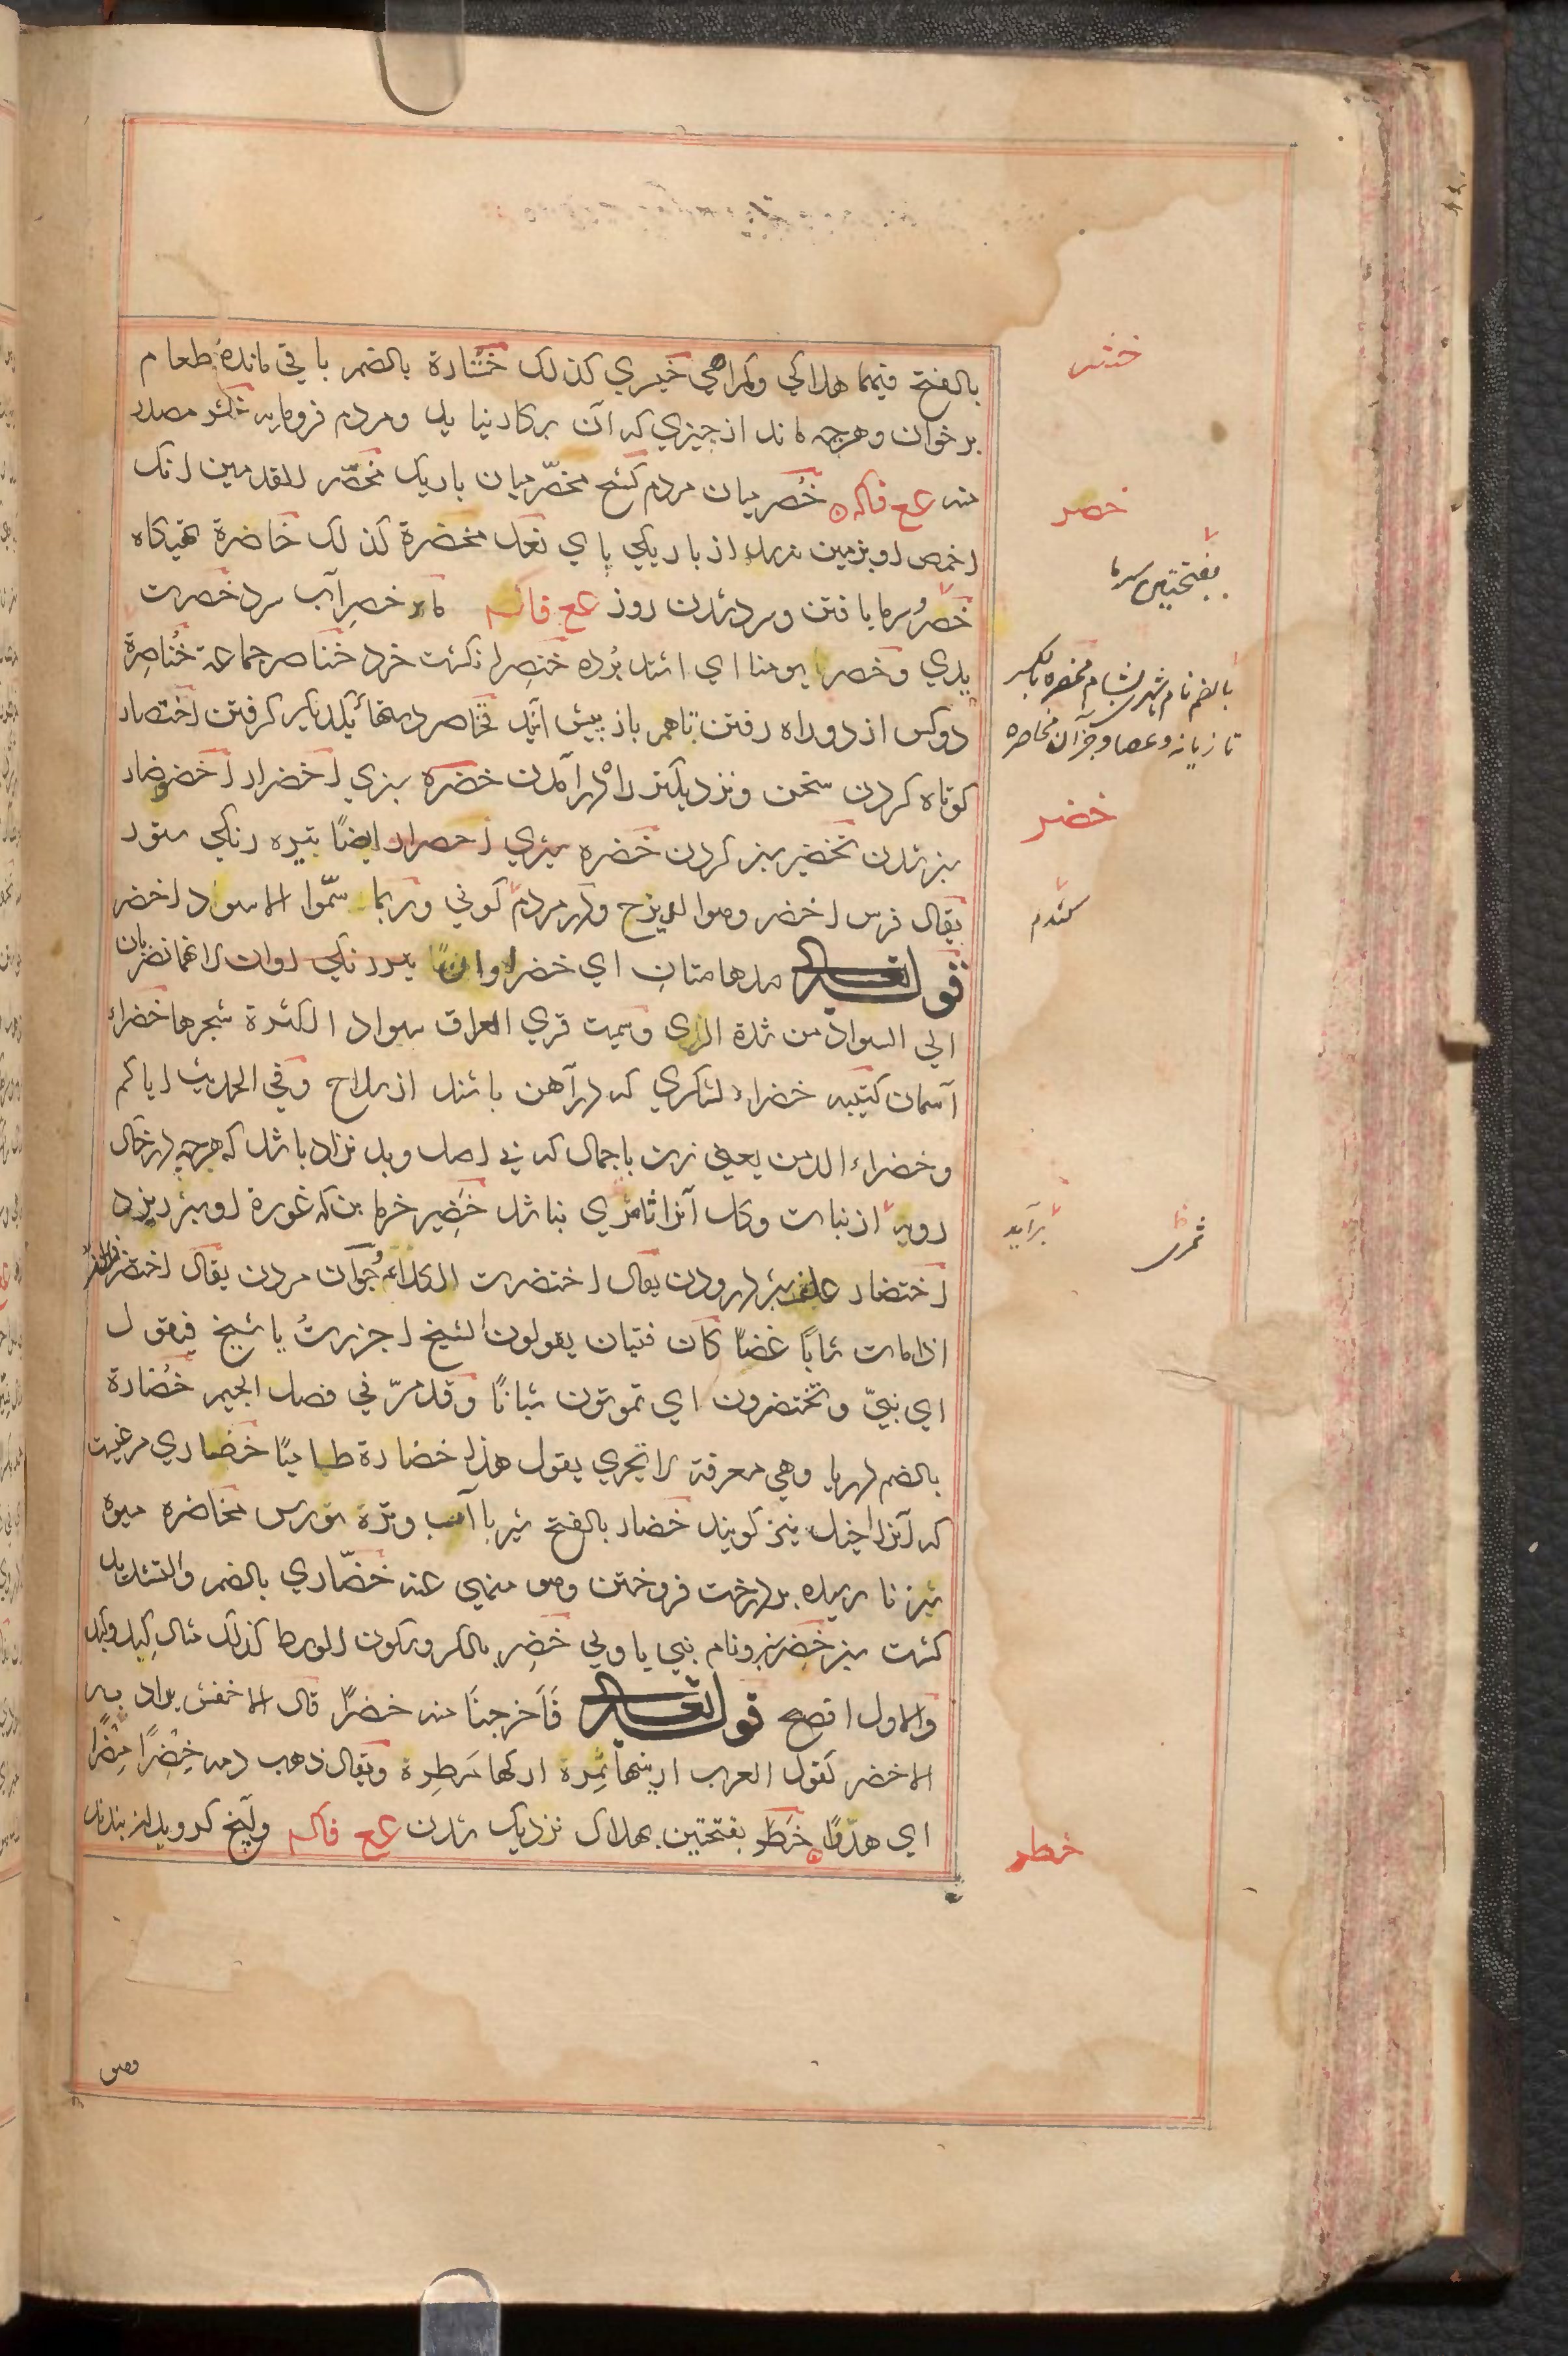 بالفتح فیهما هلاکی وکمراهی خیسری کذلک خشارة بالضم باقی مانده طعام
برخوان وهرچه ماند از چیزی که آن برکار نیاید ومردم فرومایه خشر مصدر
منه عع فاکه خصر میان مردم کشح مخصّر میان باریک مخصّر القدمین انک
اخمص او بزمین نرسد از باریکی پای نعل مخصرة کذلک خاصرة تهیکاه
خصرُ سرما یافتن وسرد شدن روز عع فاکه ماء خصِر آب سرد خصرت
یدی وخصر یومنا ای اشتد برده خنصر انکشت خرد خناصر جماعة خُناصِرة
دوکس از دو راه رفتن تاهم باز پیش آیند تخاصر دستهای یکدیکر کرفتن اختصار
کوتاه کردن سخن ونزدیکتر راه درآمدن خضره سبزی اخضرار اخضیضار
سبز شدن تخضیر سبز کردن خضره سبزی احضرار ایضًا تیره رنکی ستور
یقال فرس اخضر وهو الدیزج ودر مردم کونی وربما سمّوا الاسود اخضر
قوله تعالی مدهامتان ای خضراوان لانهما تضربان
الی السواد من شدة الری وسمیت قری العراق سواد الکثرة شجرها خضراء
آسمان کتیبه خضراء لشکری که در آهن باشند از سلاح وفی الحدیث ایاکم
وخضراء الدمن یعنی زن باجمال که بی اصل وبد نژاد باشد که هرچه در خاک
روید از نبات وکل آنرا ثامری نباشد خضیر خرما بن که غورۀ او سبز ریزد
اختضار علف سبز درودن یقال اختضرت الکلاء وجوان مردن یقال اختضر
اذا مات شابًا غضًا کان فتیان یقولون لشیخ اجززت یا شیخ فیقول
ای بنیّ وتختضرون ای تموتون شبانًا وقد مرّ فی فصل الجیم خضارة
بالضم دریا وهی معرفة لا تجری یقول هذا خضارة طامیًا خضاری مرغیست
که آنرا اخیل نیز کویند خضار بالفتح شیر با آب وترۀ نورس مخاضره میوه
سبز نارسیده بر درخت فروختن وهو منهی عنه خضّاری بالضم والتشدید
کشت سبز خضر سبز ونام نبی یا ولی خضر بالکسر وسکون الوسط کذلک مثال کبد وکبد
والاول افصح قوله تعالی فاخرجنا منه خضرًا قال الاخفش یراد به
الاخضر کقول العرب ارنیها نمرة ارکها مطرة ویقال ذهب دمه خِضرًا مِضرًا
ای هدرًا خطر بفتحتین بهلاک نزدیک شدن عع فاکه وآنچ کرو بدان بندند
خشر
خصر
بفتحتین سرما
بالضم نام شهر بشام مخصره بالکسر
تازیانه وعصا وجزآن مخاصره
خضر
کندم
برآید
ثمری
خطر
وهو